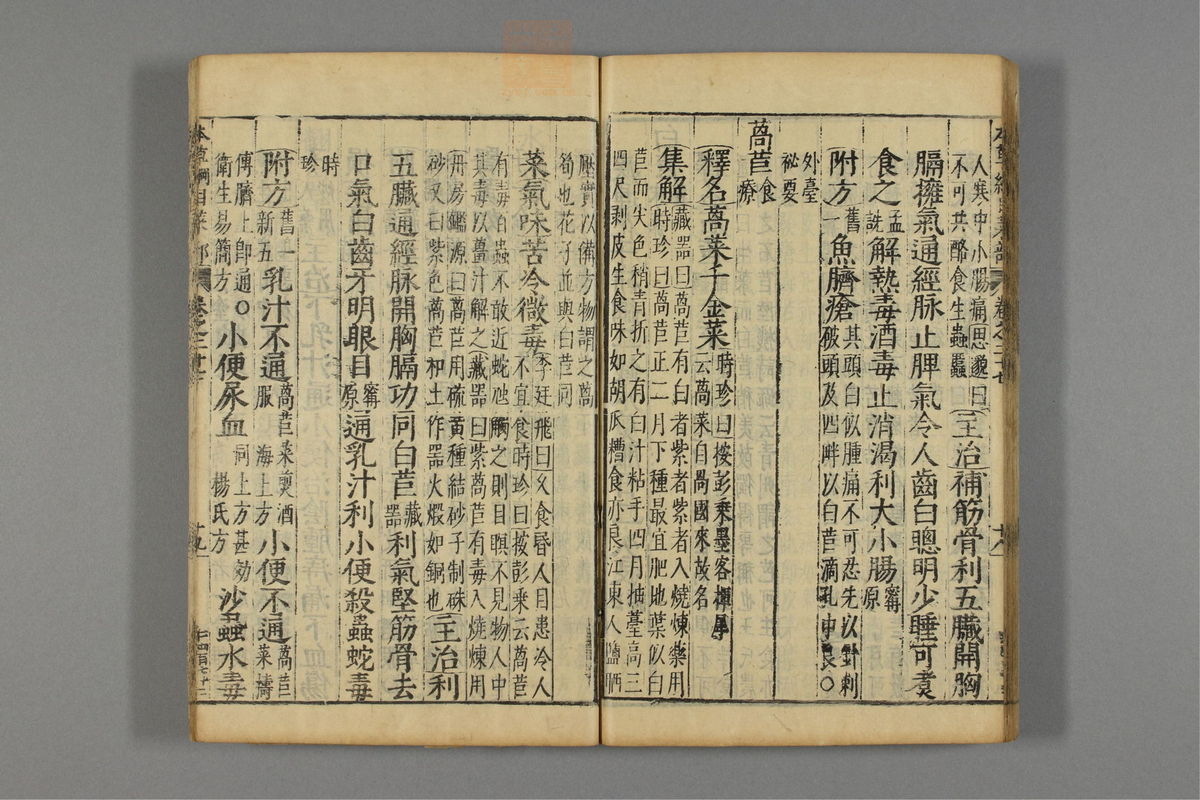 人寒中小腸痛思邈曰
不可共酪食生蟲䘌
主治補筋骨利五臟開胸
膈擁氣通經脉止脾氣令人齒白聰明少睡可煮
食之孟詵解熱毒酒毒止消渴利大小腸甯原
附方舊一魚臍瘡其頭白似腫痛不可忍先以針刺
破頭及四畔以白苣滴孔中良〇
外臺秘要
萵苣食療
釋名萵菜千金菜時珍曰按彭乘墨客揮犀
云萵菜自咼國來故名
集解藏器曰萵苣有白者紫者紫者入燒煉藥用
時珍曰萵苣正二月下種最宜肥地葉似白
苣而尖色稍青折之有白汁粘手四月抽薹高三
四尺剥皮生食味如胡瓜糟食亦良江東人鹽晒
壓實以備方物謂之萵
筍也花子並與白苣同
菜氣味苦冷微毒李廷飛曰久食昏人目患冷人
不宜食時珍曰按彭乘云萵苣
有毒百蟲不敢近蛇虺觸之則目瞑不見物人中
其毒以薑汁解之藏器曰紫萵苣有毒入燒煉用
丹房鑑源曰萵苣用硫黄種結砂子制硃
砂又曰紫色萵苣和土作器火煆如銅也
主治利
五臟通經脉開胸膈功同白苣藏器利氣堅筋骨去
口氣白齒牙明眼目甯原通乳汁利小便殺蟲蛇毒
時珍
附方舊一新五乳汁不通萵苣菜煎酒服海上方小便不通萵苣菜擣
傅臍上即通衛生易簡方〇小便尿血同上方甚効楊氏方沙蝨水毒
本草綱目菜部 卷之二十七 十九